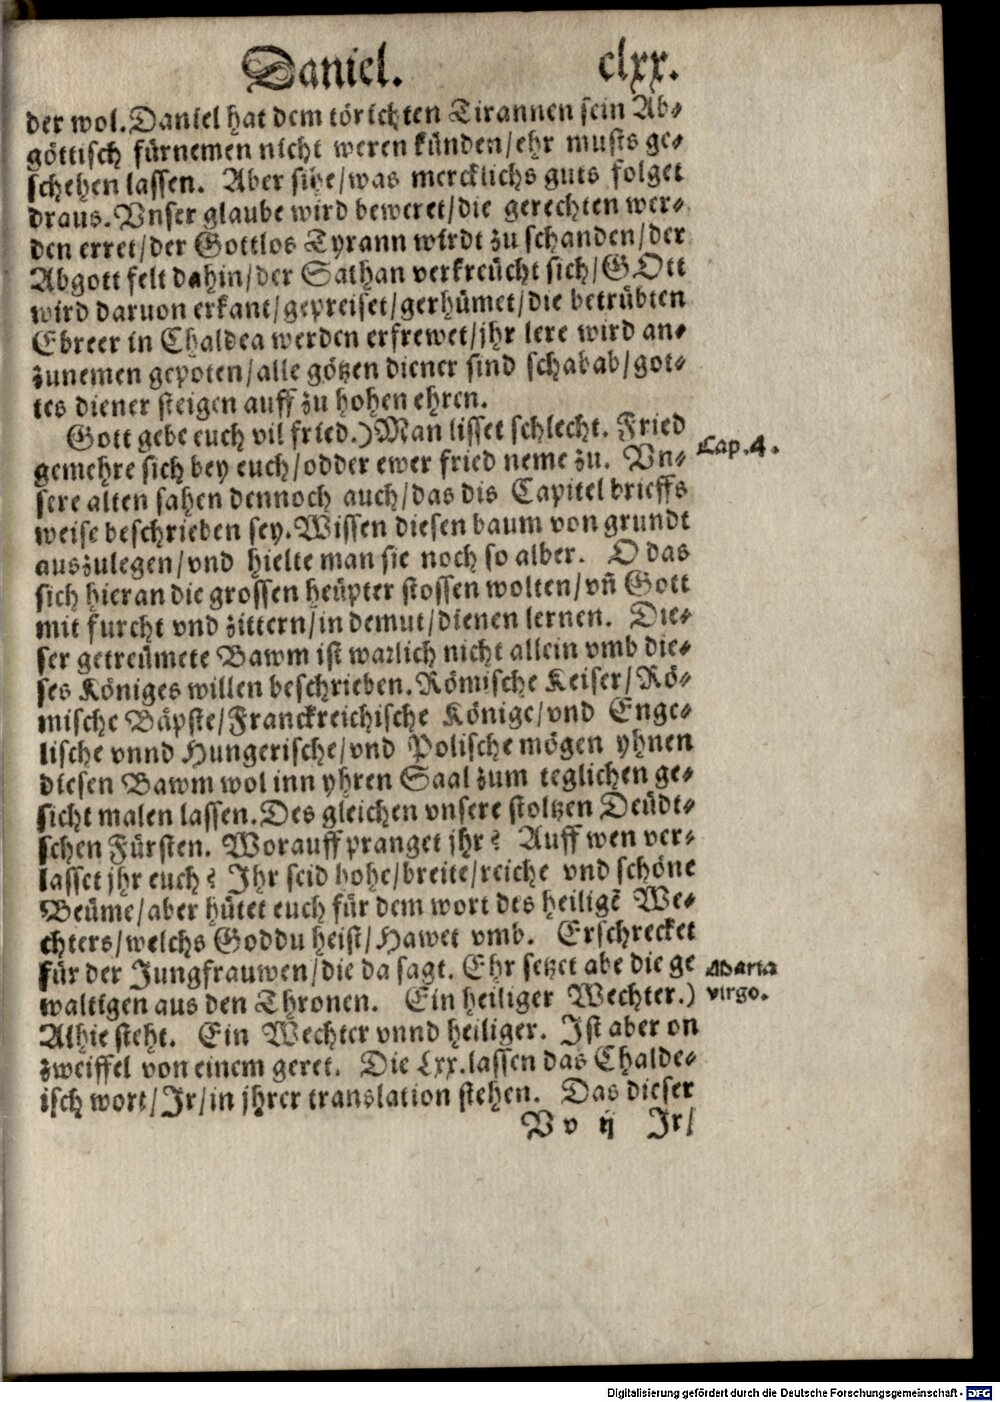 Daniel. clxx.
der wol. Daniel hat dem törichten Tirannen sein Ab-
göttisch fürnemen nicht weren künden/ehr musts ge-
schehen lassen. Aber sihe/was mercklichs guts folget
draus. Vnser glaube wird beweret/die gerechten wer-
den erret/der Gottlos Tyrann wirdt zu schanden/der
Abgott felt dahin/der Sathan verkreücht sich/GOtt
wird daruon erkant/gepreiset/gerhümet/die betrübten
Ebreer in Chaldea werden erfrewet/jhr lere wird an-
zunemen gepoten/alle götzen diener sind schabab/got-
tes diener steigen auff zu hohen ehren.
Gott gebe euch vil fried.) Man lisset schlecht. Fried
Cap. 4.
gemehre sich bey euch/odder ewer fried neme zu. Vn-
sere alten sahen dennoch auch/das dis Capitel brieffs
weise beschrieben sey. Wissen diesen baum von grundt
auszulegen/vnd hielte man sie noch so alber. O das
sich hieran die grossen heüpter stossen wolten/vñ Gott
mit furcht vnd zittern/in demut/dienen lernen. Die-
ser getreümete Bawm ist warlich nicht allein vmb die-
ses Königes willen beschrieben. Römische Keiser/Rö-
mische Bäpste/Franckreichische Könige/vnd Enge-
lische vnnd Hungerische/vnd Polische mögen yhnen
diesen Bawm wol inn yhren Saal zum teglichen ge-
sicht malen lassen. Des gleichen vnsere stoltzen Deüdt-
schen Fürsten. Worauff pranget jhr? Auff wen ver-
lasset jhr euch? Ihr seid hohe/breite/reiche vnd schöne
Beüme/aber hütet euch für dem wort des heiligẽ We-
chters/welchs Goddu heist/Hawet vmb. Erschrecket
für der Jungfrauwen/die da sagt. Ehr setzet abe die ge
Maria
waltigen aus den Thronen. Ein heiliger Wechter.)
virgo.
Alhie steht. Ein Wechter vnnd heiliger. Ist aber on
zweiffel von einem geret. Die Lxx. lassen das Chalde-
isch wort/Ir/in jhrer translation stehen. Das dieser
V v ij Ir/
Digitalisierung gefördert durch die Deutsche Forschungsgemeinschaft - DFG